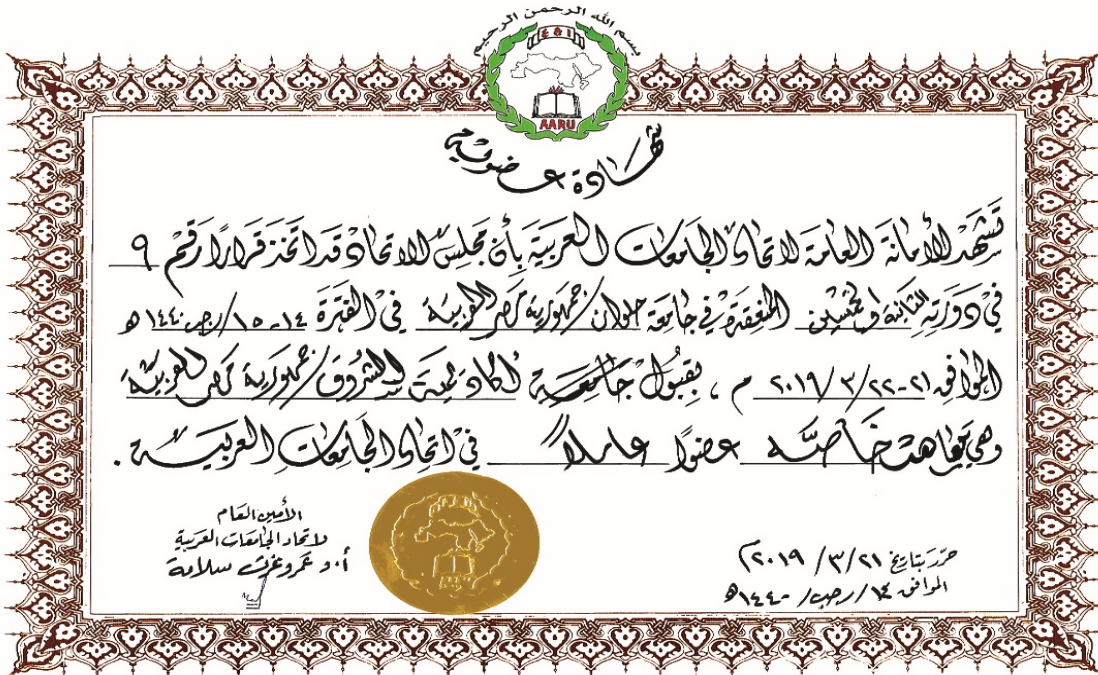 بسم الله الرحمن الرحيم
ا ج ع
AARU
شهادة عضوية
تشهد الأمانة العامة لاتحاد الجامعات العربية بأن مجلس الاتحاد قد اتخذ قراراً رقم ٩
في دورته الثانية والخمسين المنعقدة في جامعة حلوان / جمهورية مصر العربية في الفترة ١٤-١٥/رجب/١٤٤٠ه
الموافق ٢١-٢٢/٣/٢٠١٩ م ، بقبول جامعة أكاديمية الشروق / جمهورية مصر العربية
وهي معاهد خاصة عضواً عاملاً في اتحاد الجامعات العربية .
الأمين العام
لاتحاد الجامعات العربية
أ.د عمرو عزت سلامة
حرر بتاريخ ٢١/٣/٢٠١٩م
الموافق ١٤/رجب/١٤٤٠ه